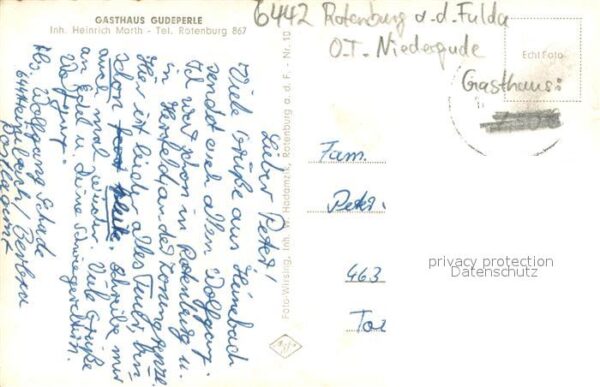 GASTHAUS GUDEPERLE
Inh. Heinrich Marth - Tel. Rotenburg 867
6442 Rotenburg a.d. Fulda
O.T. Niedergude
Gasthaus:
Echt Foto
Lieber Peter!
Viele Grüße aus Heinebach
sendet euch allen Wolfgang.
Ich war schon in Rotenburg u.
in Hersfeld, an der Zonengrenze.
Hier ist leider alles
schon heute. Schreibe mir
auch mal wieder. Viele Grüße
an Edel u. deine Schwiegereltern.
Wolfgang
Wolfgang
Heinebach
Postlagernd
Foto-Wirsing, Inh. W. Hadamzik, Rotenburg a. d. F. - Nr. 10
Agfa
Fam.
Peter.
463
privacy protection
Datenschutz